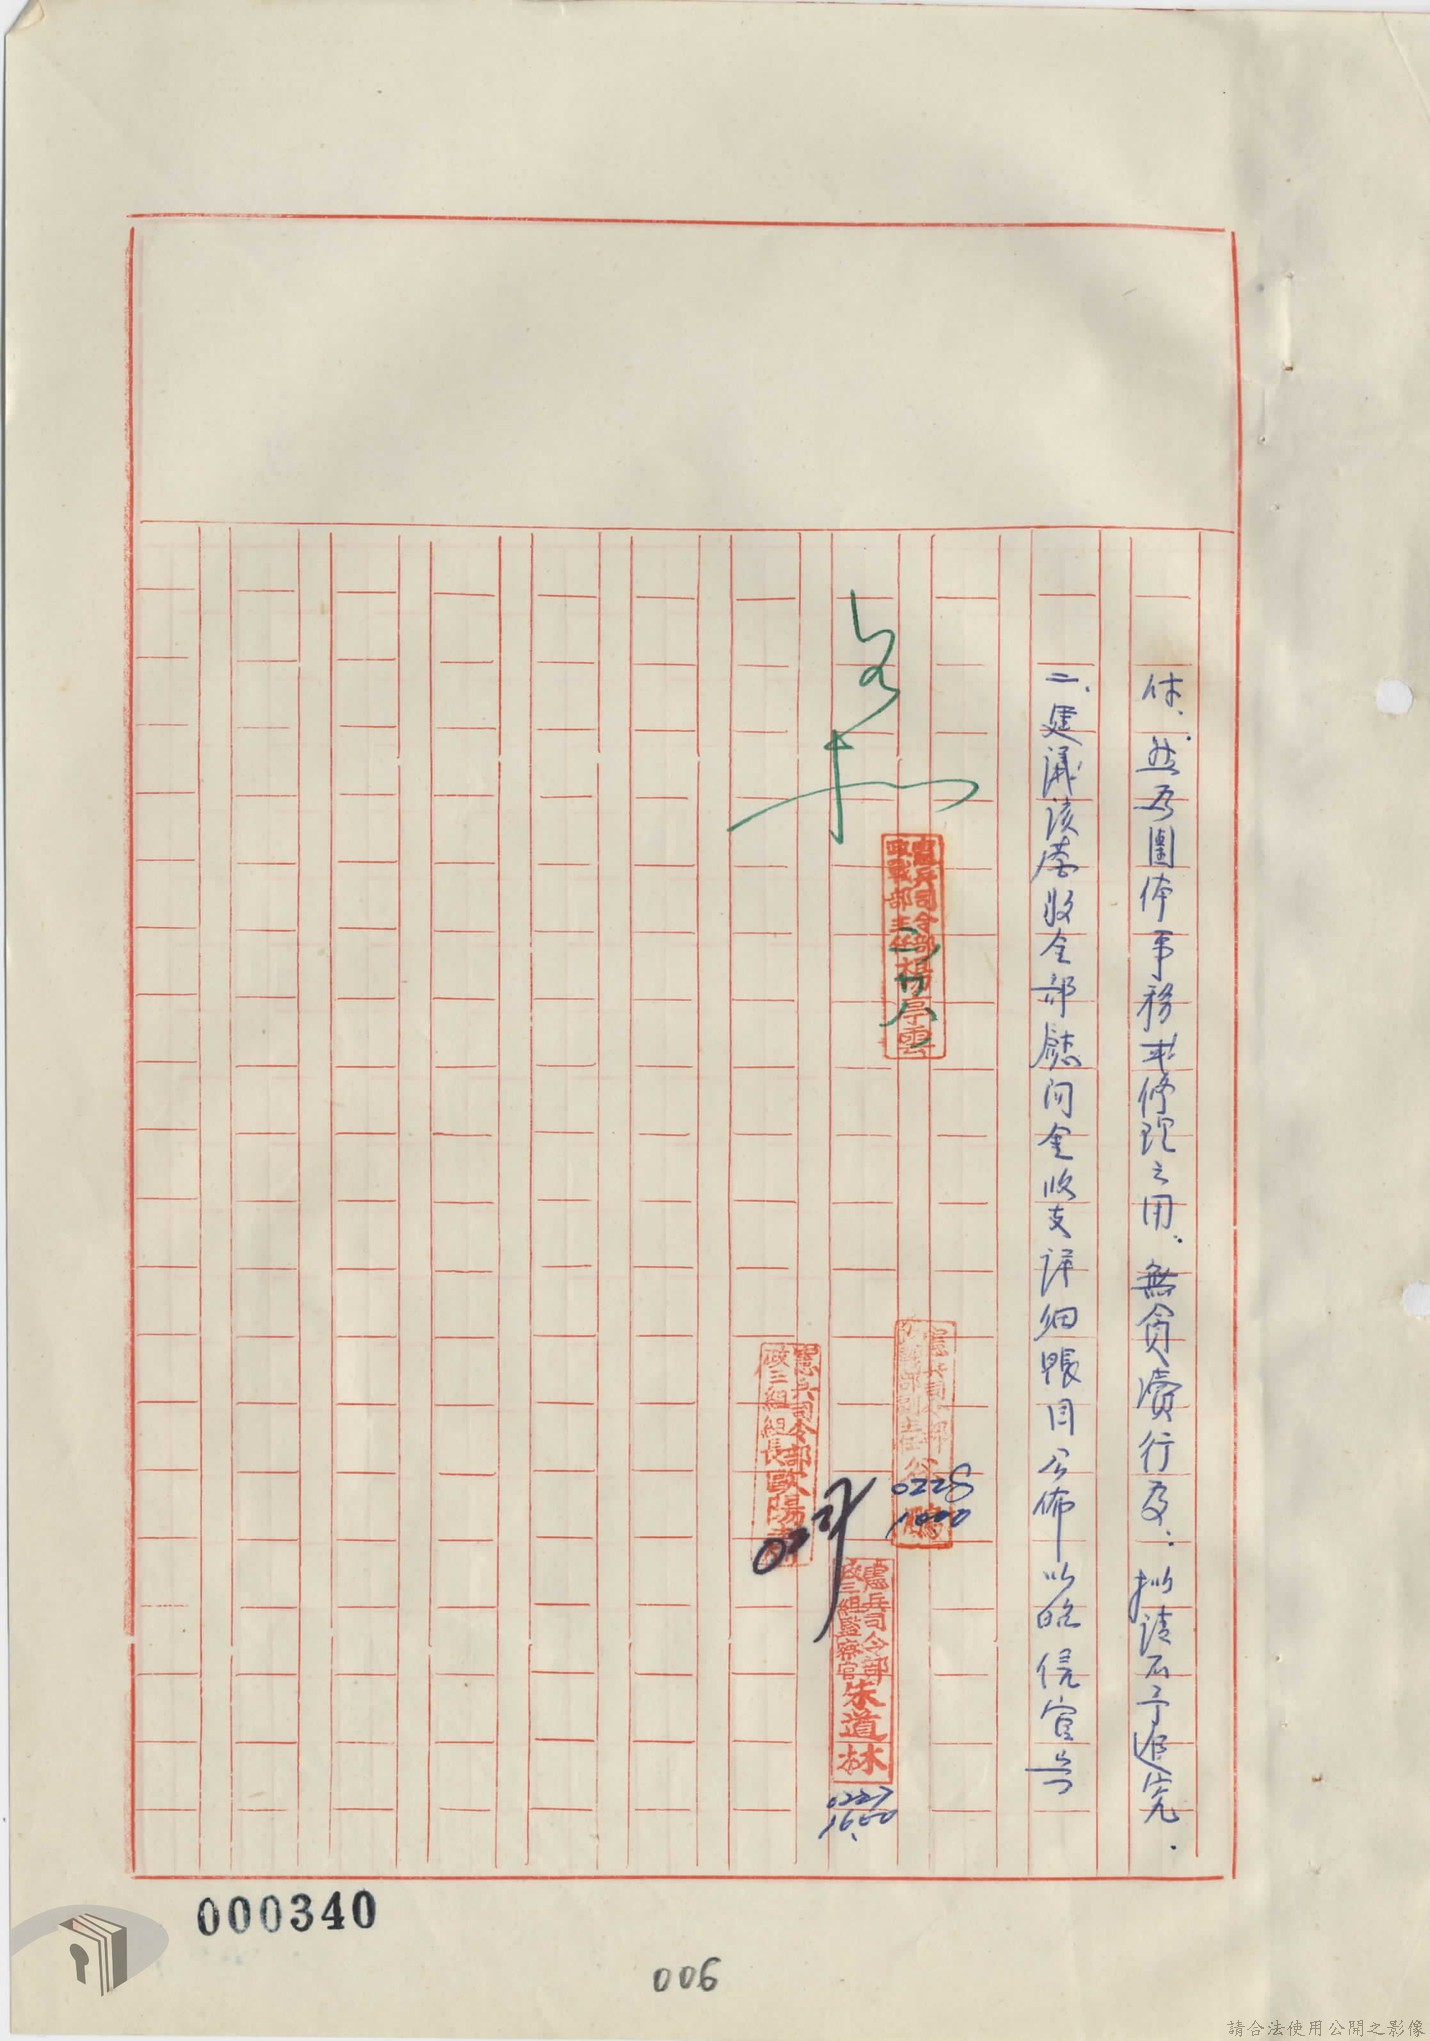 体,然為團体事務或修理之用,無貪瀆行為,擬請不予追究.
二、建議該營收全部慰问金收支详細賬目公佈以昭信官兵
憲兵司令部
政戰部主任 楊亭雲
二廿八
憲兵司令部
政戰部副主任
鵬
0228
1000
憲兵司令部
政三組組長 歐陽
憲兵司令部
政三組監察官 朱道林
0227
1600
000340
006
請合法使用公開之影像